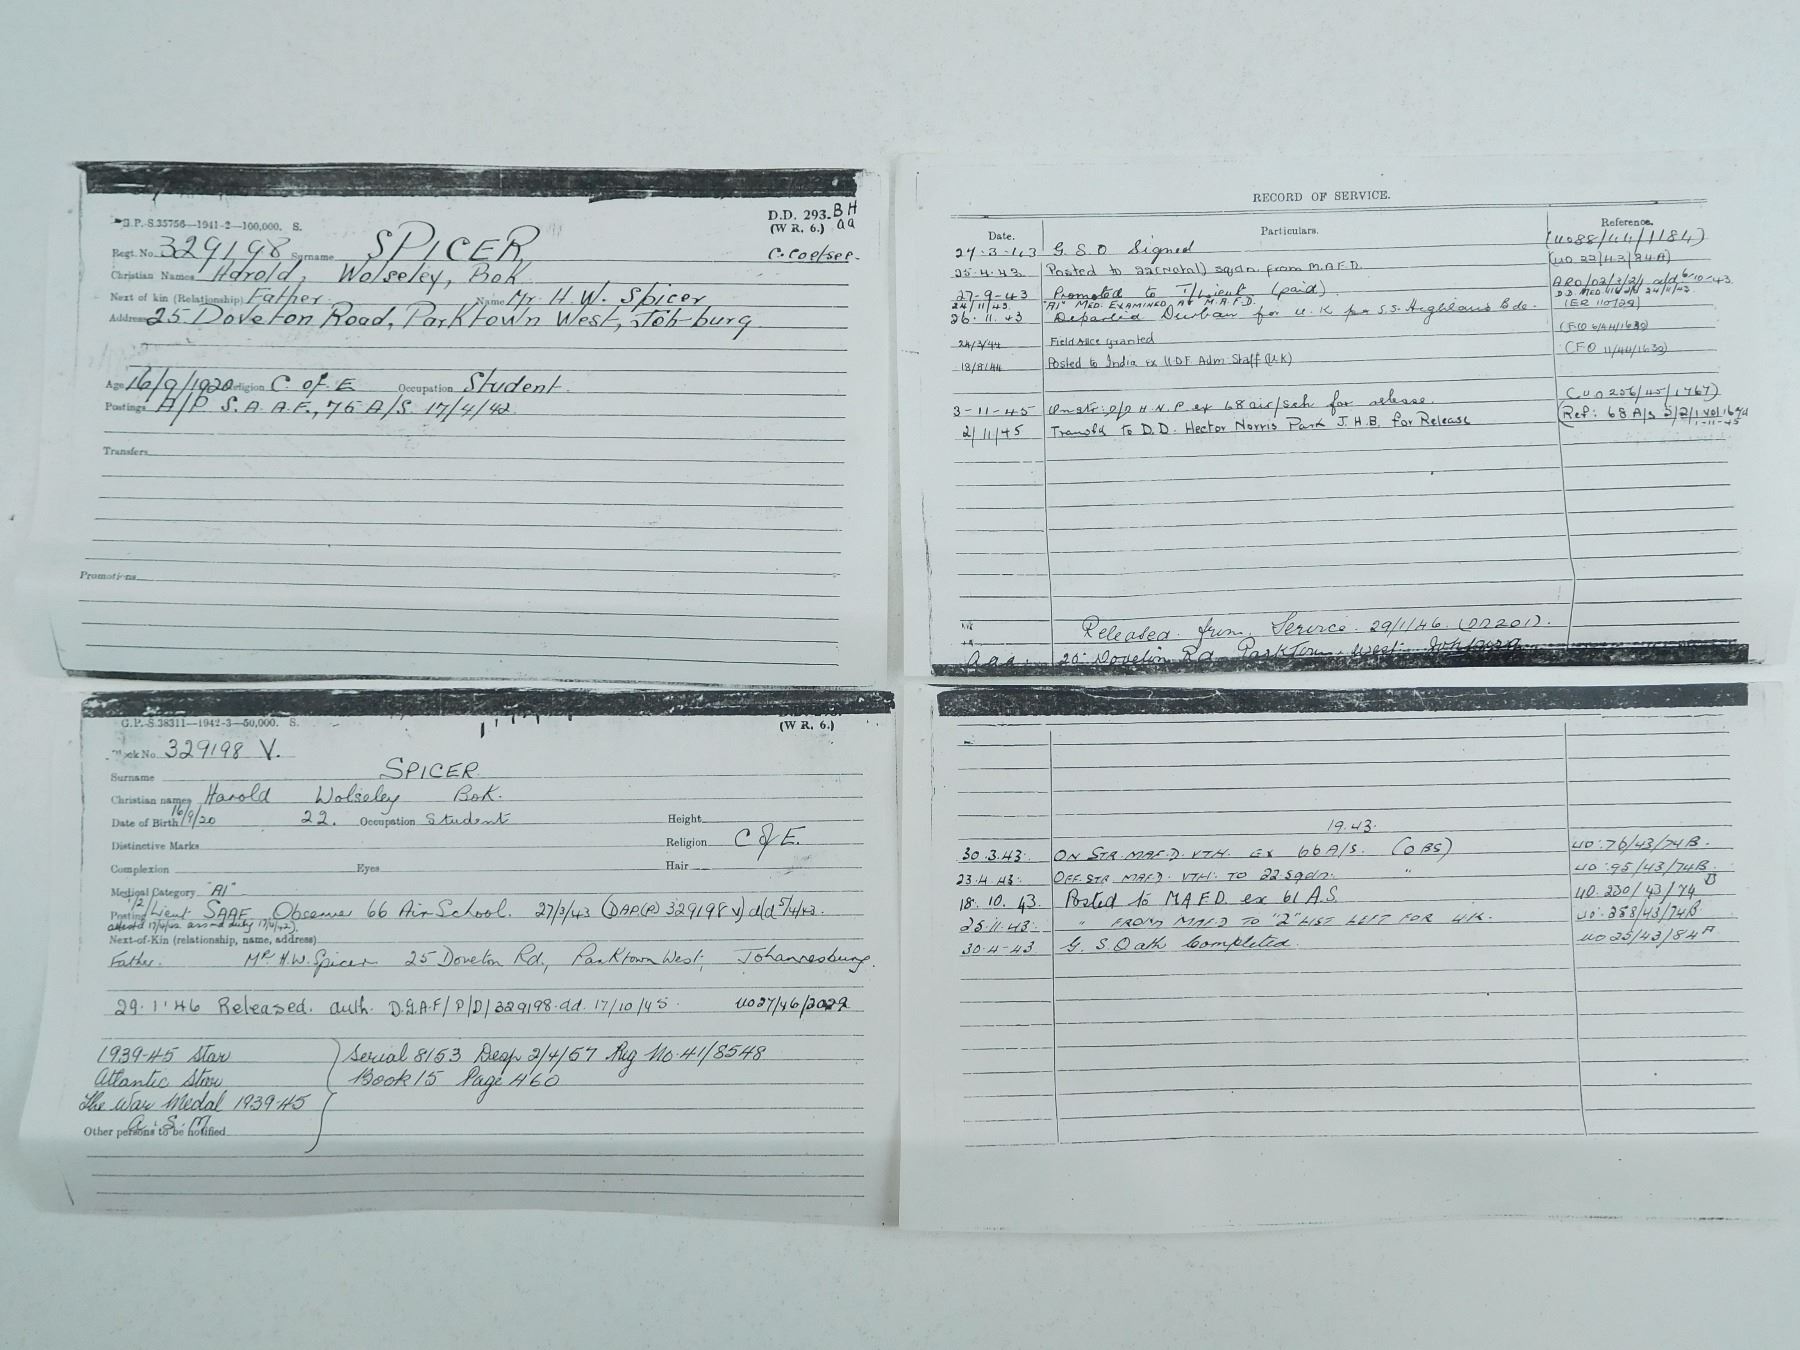 G.P.-S.35756—1941-2—100,000. S.
D.D. 293. BH
(W R. 6.) aa
Regt. No. 329198 Surname SPICER
Christian Names Harold, Wolseley, Bok
Next of kin (Relationship) Father Name Mr. H. W. Spicer
Address 25 Doveton Road, Parktown West, Joh-burg
Age 16/9/1920 Religion C. of. E Occupation Student.
Postings A/P. S.A.A.F., 75 A/S. 17/4/42
Transfers
Promotions
RECORD OF SERVICE.
Date. Particulars. Reference.
27.3.43 G.S.O Signed (UO88/44/1184)
25.4.43 Posted to 22(Natal) sqdn from M.A.F.D. (UO 22/43/84A)
27-9-43 Promoted to T/Lieut (paid)
24/11/43 "A1" MED. EXAMINED AT M.A.F.D.
26.11.43 Departed Durban for U.K per S.S. Highland Bde. (ER 110/29)
24/3/44 Field allce granted
18/8/44 Posted to India ex U.D.F Adm. Staff (U.K) (FO 11/44/1639)
3-11-45 H.N.P. ex 68 air/sch for release. (UO 256/45/1767)
2/11/45 Transfd to D.D. Hector Norris Park J.H.B. for Release
Released from Service 29/1/46. (DD201).
25 Doveton Rd Parktown West
G.P.-S.38311—1942-3—50,000. S.
(W R. 6.)
No. 329198 V.
Surname SPICER
Christian names Harold Wolseley Bok.
Date of Birth 16/9/20 22. Occupation Student Height
Distinctive Marks Religion C of E.
Complexion Eyes Hair
Medical Category "A1"
Posting 1/2/Lieut SAAF Observer 66 Air School. 27/3/43 (DAP(P) 329198 V) d/d 5/4/43.
Next-of-Kin (relationship, name, address)
Father. Mr H.W. Spicer 25 Doveton Rd, Parktown West, Johannesburg.
29.1.46 Released. auth. D.G.A.F/P/D/329198.dd. 17/10/45. UO27/46/2029
1939-45 Star Serial 8153 Desp 2/4/57 Reg No. 41/8548
Atlantic Star Book 15 Page 460
The War Medal 1939-45
A.S.M.
Other persons to be notified
19.43.
30.3.43. ON STR. MAF.D. VTH. EX 66 A/S. (OBS) UO.76/43/74B.
23.4.43. OFF. STR MAF.D. VTH. TO 22 Sqdn. " UO.95/43/74B.
18.10.43. Posted to MAFD. ex 61 A.S. UO.230/43/74 B
25.11.43. " FROM MAFD TO "Z" LIST LEFT FOR U.K. UO.258/43/74B.
30.4-43 G.S. Oath Completed. UO25/43/84A